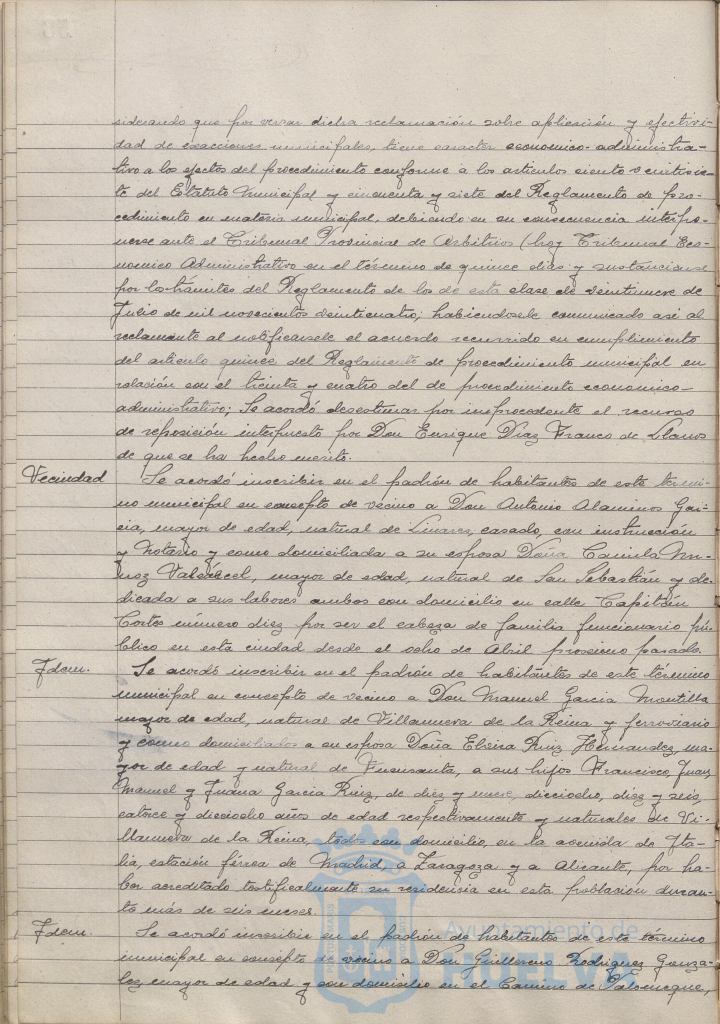 siderando que por versar dicha reclamación sobre aplicación y efectivi-
dad de exacciones municipales, tiene caracter economico-administra-
tivo a los efectos del procedimiento conforme a los articulos ciento veintisie-
te del Estatuto Municipal y cincuenta y siete del Reglamento de pro-
cedimiento en materia municipal, debiendo en su consecuencia interpo-
nerse ante el Tribunal Provincial de Arbitrios (hoy Tribunal Eco-
nomico Administrativo en el término de quince dias y sustanciarse
por los trámites del Reglamento de los de esta clase de veintinueve de
Julio de mil novecientos veinticuatro; habiendosele comunicado asi al
reclamante al notificarsele el acuerdo recurrido en cumplimiento
del articulo quince del Reglamento de procedimiento municipal en
relación con el treinta y cuatro del de procedimiento economico-
administrativo; Se acordó desestimar por improcedente el recurso
de reposición interpuesto por Don Enrique Diaz Franco de Llanos
de que se ha hecho merito.
Vecindad Se acordó inscribir en el padrón de habitantes de este termi-
no municipal en concepto de vecino a Don Antonio Alaminos Gar-
cia, mayor de edad, natural de Linares, casado, con instrucción
y Notario y como domiciliada a su esposa Doña Camila Mu-
ñoz Valcárcel, mayor de edad, natural de San Sebastián y de-
dicada a sus labores ambos con domicilio en calle Capitán
Cortés número diez por ser el cabeza de familia funcionario pú-
blico en esta ciudad desde el ocho de Abril proximo pasado.
Idem. Se acordó inscribir en el padrón de habitantes de este término
municipal en concepto de vecino a Don Manuel Garcia Montilla
mayor de edad, natural de Villanueva de la Reina y ferroviario
y como domiciliados a su esposa Doña Elvira Ruiz Hernandez, ma-
yor de edad y natural de Fuensanta, a sus hijos Francisco, Juan,
Manuel y Juana Garcia Ruiz, de diez y nueve, dieciocho, diez y seis,
catorce y dieciocho años de edad respectivamente y naturales de Vi-
llanueva de la Reina, todos con domicilio, en la avenida de Ita-
lia, estación férrea de Madrid, a Zaragoza y a Alicante, por ha-
ber acreditado testificalmente su residencia en esta población duran-
te más de seis meses.
Idem. Se acordó inscribir en el padrón de habitantes de este término
municipal en concepto de vecino a Don Guillermo Rodriguez Gonza-
lez mayor de edad y con domicilio en el Camino de
Ayuntamiento de
HUELVA